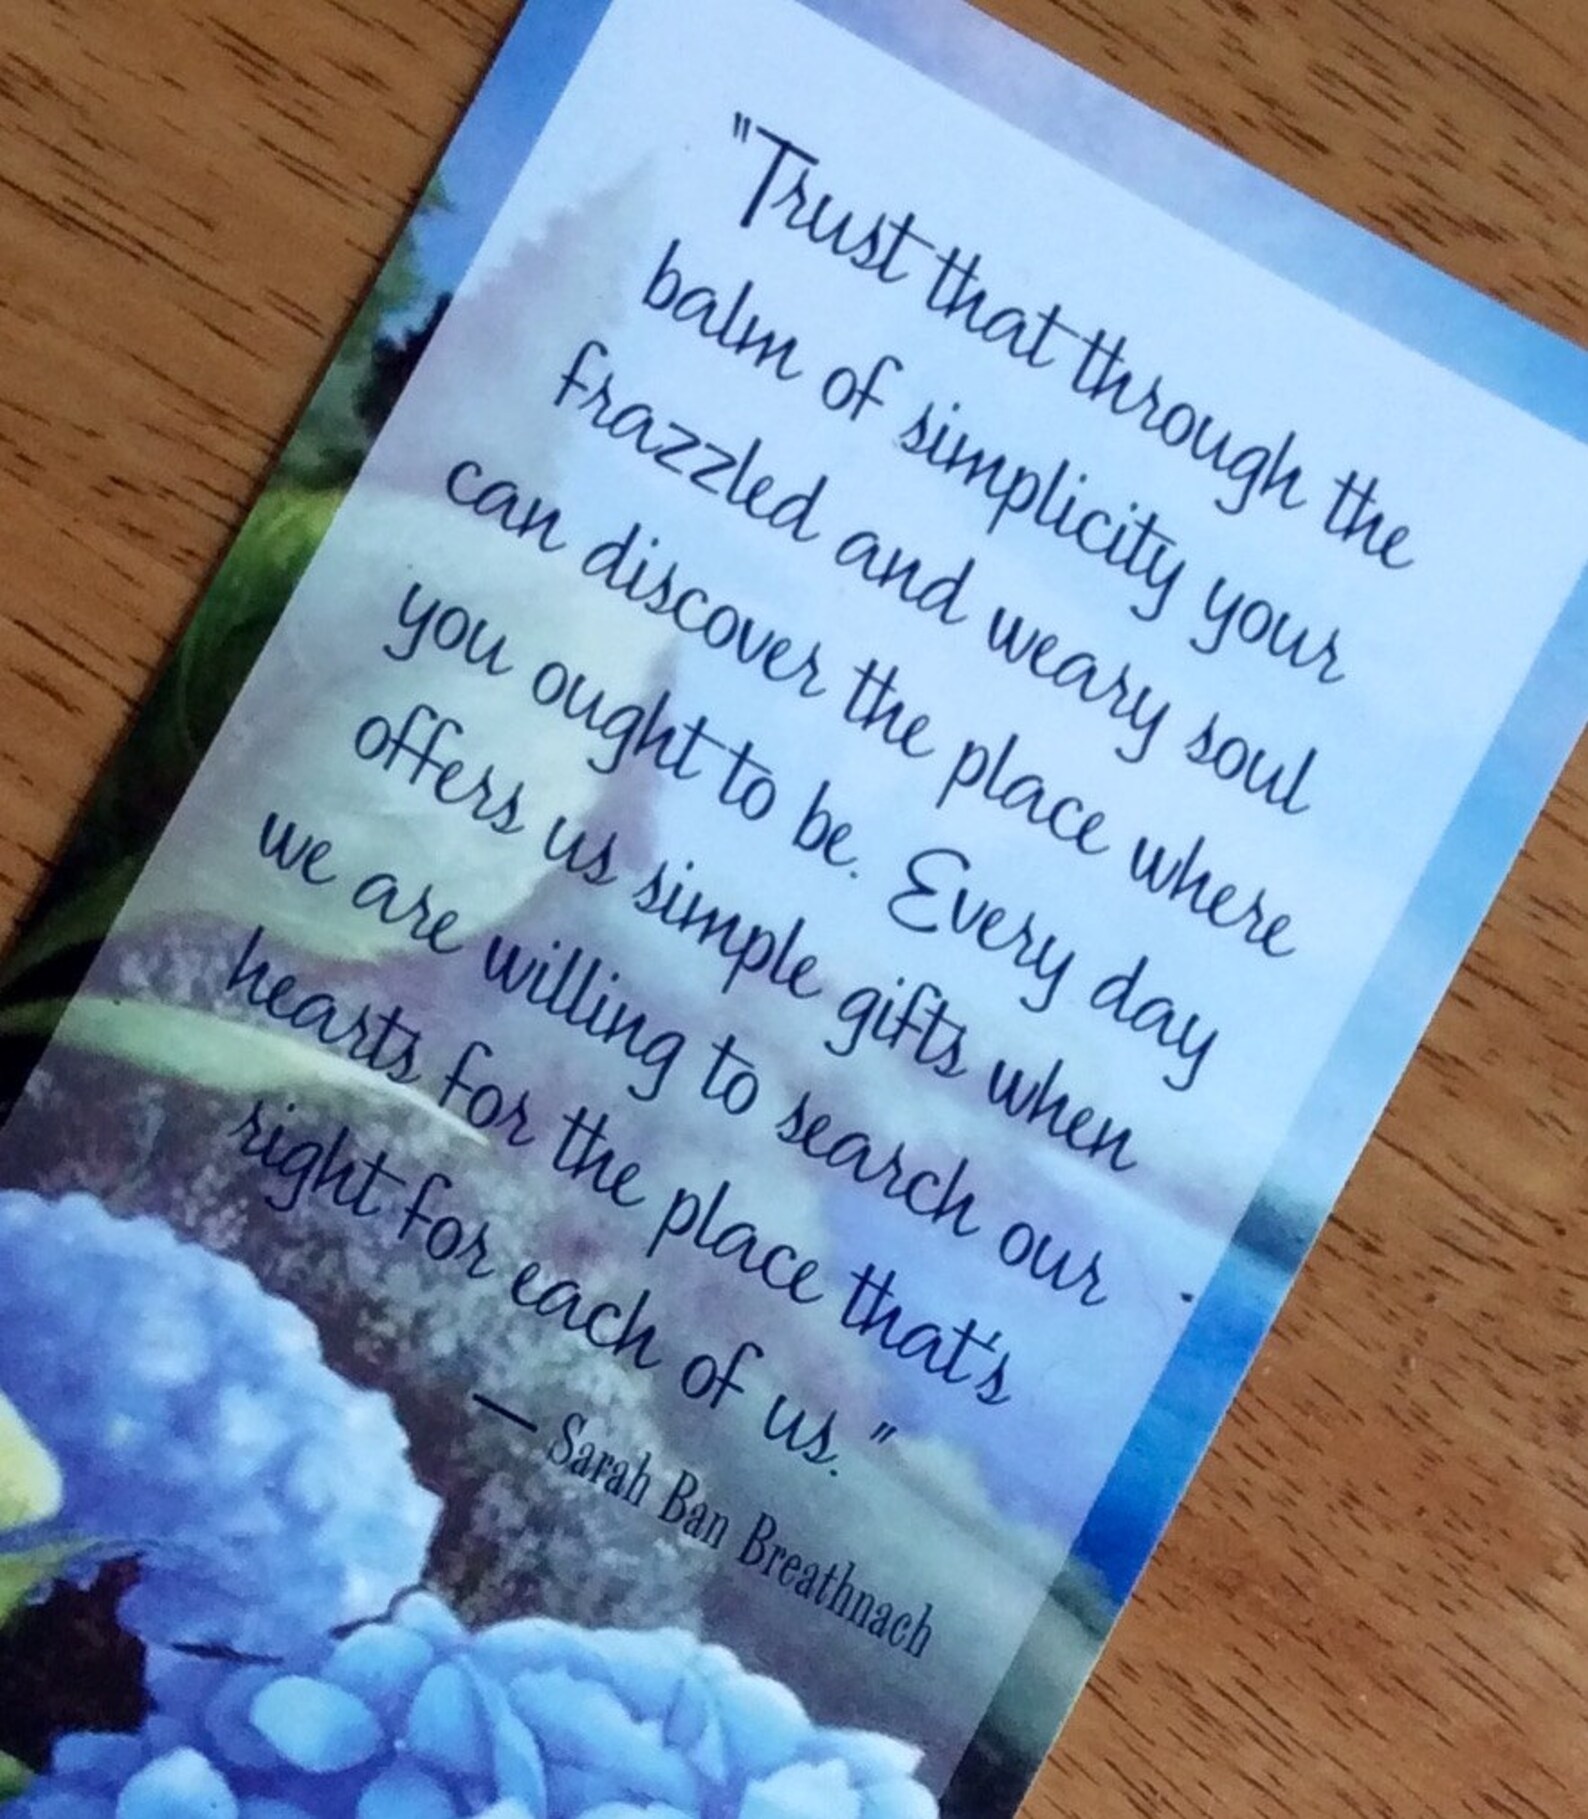 "Trust that through the
balm of simplicity your
frazzled and weary soul
can discover the place where
you ought to be. Every day
offers us simple gifts when
we are willing to search our
hearts for the place that's
right for each of us."
— Sarah Ban Breathnach